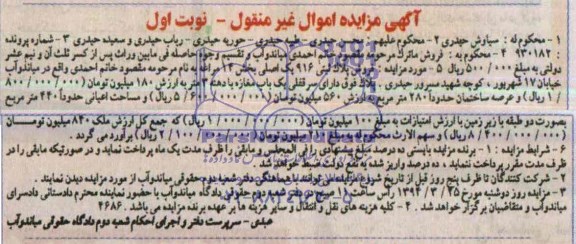 آگهی مزایده اموال غیر منقول - نوبت اول
۱ - محکوم له : سیاوش حیدری ۲- محکوم علیهم : حیدری - علی حیدری - حوریه حیدری - رباب حیدری و سعیده حیدری ۳ - شماره پرونده
۹۳۰۱۸۲ ۴- محکوم به : فروش ماترک مرحومه مقصود و خاتم احمدی میاندوآب و تقسیم وجوه حاصله فی مابین وراث پس از کسر ثلث آن و نیم عشر
دولتی به مبلغ ۵۰۰/۰۰۰ ریال ۵ - مورد مزایده : فروش پلاک ثبتی ۹۱۶ اصلی بخش ۱۴ به نام مرحومه مقصود و خاتم احمدی واقع در میاندوآب
خیابان ۱۷ شهریور ، کوچه شهید مسرور حیدری . پلاک فوق دارای سرقفلی یک باب مغازه با دهنه ۳ متر به ارزش ۱۸۰ میلیون تومان (۱/۸۰۰/۰۰۰/۰۰۰
ریال ) و عرصه ساختمان حدوداً ۲۸۰ متر مربع به ارزش ۵۶۰ میلیون تومان (۵/۶۰۰/۰۰۰/۰۰۰ ریال ) و مساحت اعیانی حدوداً ۴۴۰ متر مربع
بصورت دو طبقه با زیر زمین با ارزش امتیازات به مبلغ ۱۰۰ میلیون تومان (۱/۰۰۰/۰۰۰/۰۰۰ ریال ) که جمع کل ارزش ملک ۸۴۰ میلیون تومان
(۸/۴۰۰/۰۰۰/۰۰۰ ریال ) و سهم الارث محکوم له به مبلغ میلیون تومان ( ریال ) برآورد می گردد .
۶ - شرایط مزایده : ۱- برنده مزایده بایستی ده درصد مبلغ پیشنهادی را فی المجلس و مابقی را ظرف مدت یک ماه پرداخت نماید و در صورتیکه مابقی را در
ظرف مدت مقرر پرداخت ننماید ، ده درصد واریز شده به نفع دولت ضبط خواهد شد .
۲ - شرکت کنندگان تا ظرف پنج روز قبل از تاریخ مزایده می توانند با هماهنگی دفتر شعبه دوم حقوقی میاندوآب از مورد مزایده دیدن نمایند .
۳ - مزایده روز دوشنبه مورخ ۱۳۹۴/۳/۲۵ رأس ساعت شعبه دوم حقوقی دادگاه میاندوآب با حضور نماینده محترم دادستانی دادسرای
میاندوآب و متقاضیان برگزار خواهد شد . ۴ - کلیه هزینه های نقل و انتقال و سایر هزینه ها بر عهده برنده مزایده می باشد . ۴۶۸۶
عبدی - سرپرست دفتر و اجرای احکام شعبه دوم دادگاه حقوقی میاندوآب